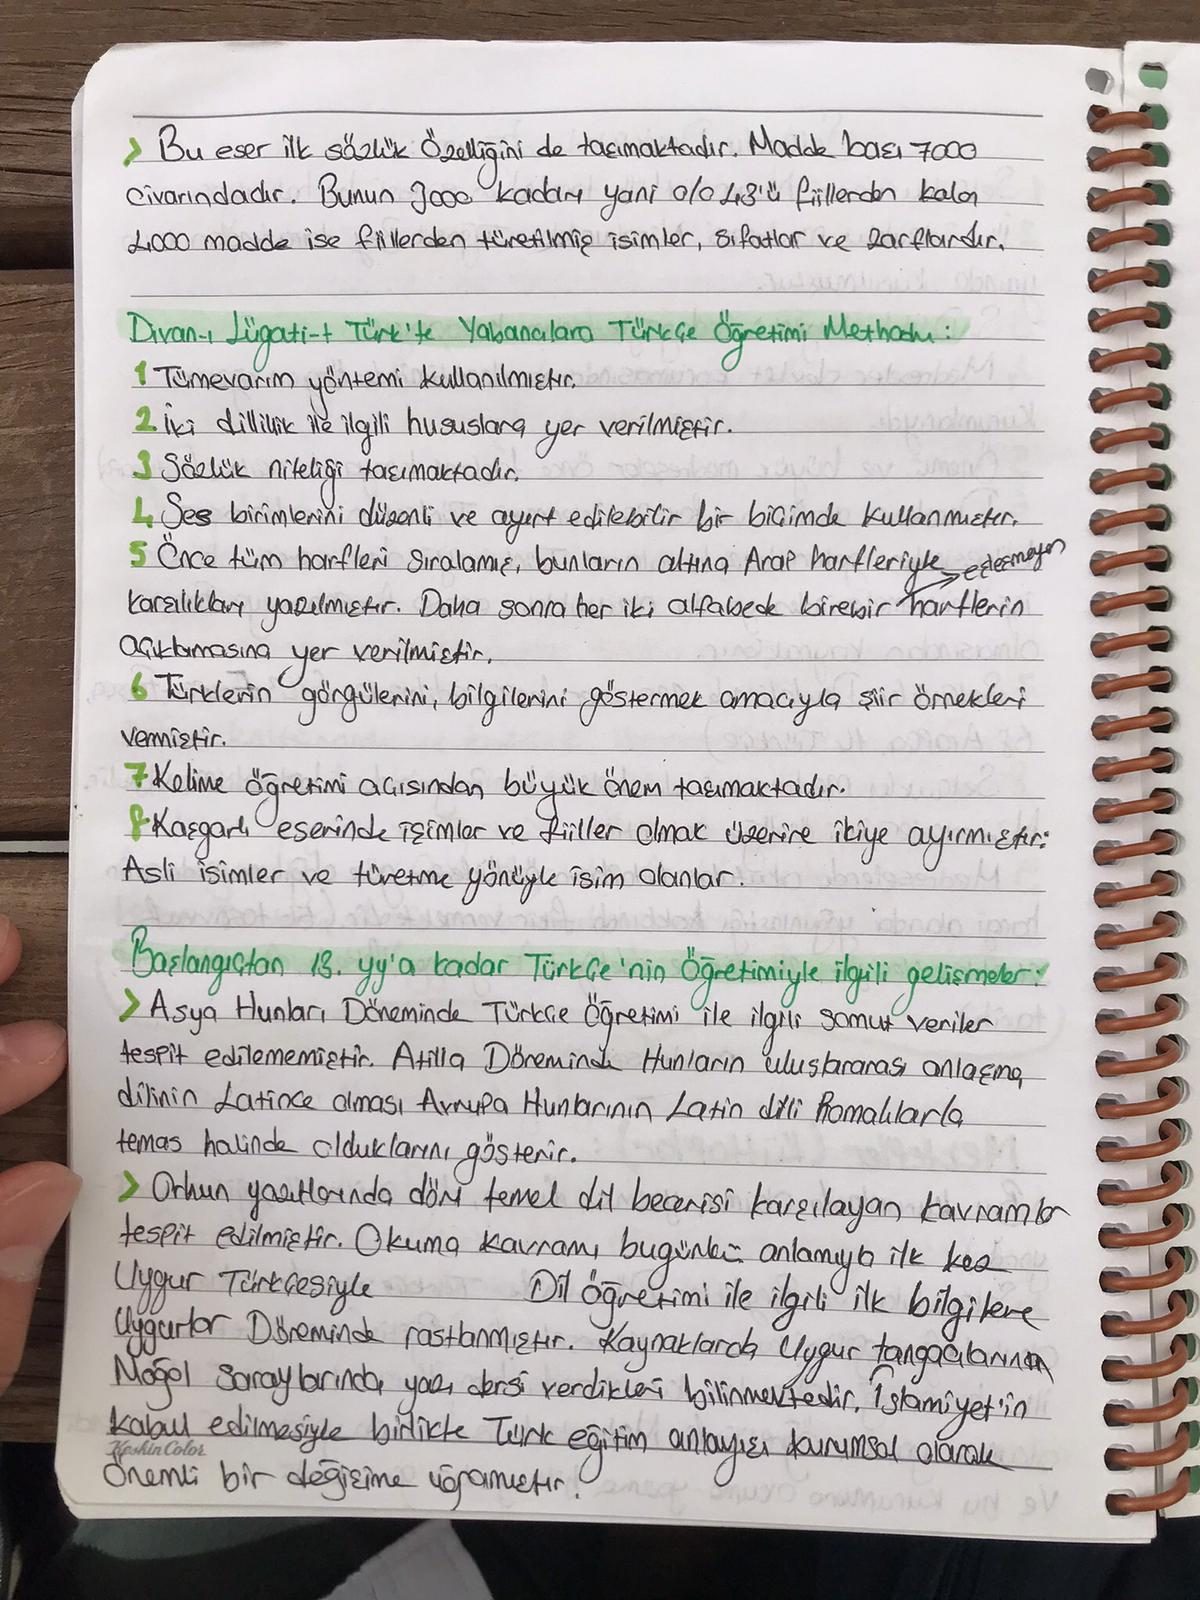 > Bu eser ilk sözlük özelliğini de taşımaktadır. Madde başı 7000
civarındadır. Bunun 3000 kadarı yani o/o 43'ü fiillerden kalan
4000 madde ise fiillerden türetilmiş isimler, sıfatlar ve zarflardır.
Divan-ı Lügati-t Türk'te Yabancılara Türkçe Öğretimi Methodu:
1 Tümevarım yöntemi kullanılmıştır.
2 İki dillilik ile ilgili hususlara yer verilmiştir.
3 Sözlük niteliği taşımaktadır.
4 Ses birimlerini düzenli ve ayırt edilebilir bir biçimde kullanmıştır.
5 Önce tüm harfleri sıralamış, bunların altına Arap harfleriyle
karşılıkları yazılmıştır. Daha sonra her iki alfabede birebir eşleşmeyen harflerin
açıklamasına yer verilmiştir.
6 Türklerin görgülerini, bilgilerini göstermek amacıyla şiir örnekleri
vermiştir.
7 Kelime öğretimi açısından büyük önem taşımaktadır.
8 Kaşgarlı eserinde işimler ve fiiller olmak üzerine ikiye ayırmıştır:
Asli isimler ve türetme yönüyle isim olanlar.
Başlangıçtan 13. yy'a kadar Türkçe'nin Öğretimiyle ilgili gelişmeler:
> Asya Hunları Döneminde Türkçe Öğretimi ile ilgili somut veriler
tespit edilememiştir. Atilla Döneminde Hunların uluslararası anlaşma
dilinin Latince olması Avrupa Hunlarının Latin dili Romalılarla
temas halinde olduklarını gösterir.
> Orhun yazıtlarında dört temel dil becerisi karşılayan kavramlar
tespit edilmiştir. Okuma kavramı bugünkü anlamıyla ilk kez
Uygur Türkçesiyle Dil öğretimi ile ilgili ilk bilgilere
Uygurlar Döneminde rastlanmıştır. Kaynaklarda Uygur tangacılarının
Moğol Saraylarında yazı dersi verdikleri bilinmektedir. İslamiyet'in
kabul edilmesiyle birlikte Türk eğitim anlayışı kurumsal olarak
KeskinColor
önemli bir değişime uğramıştır.